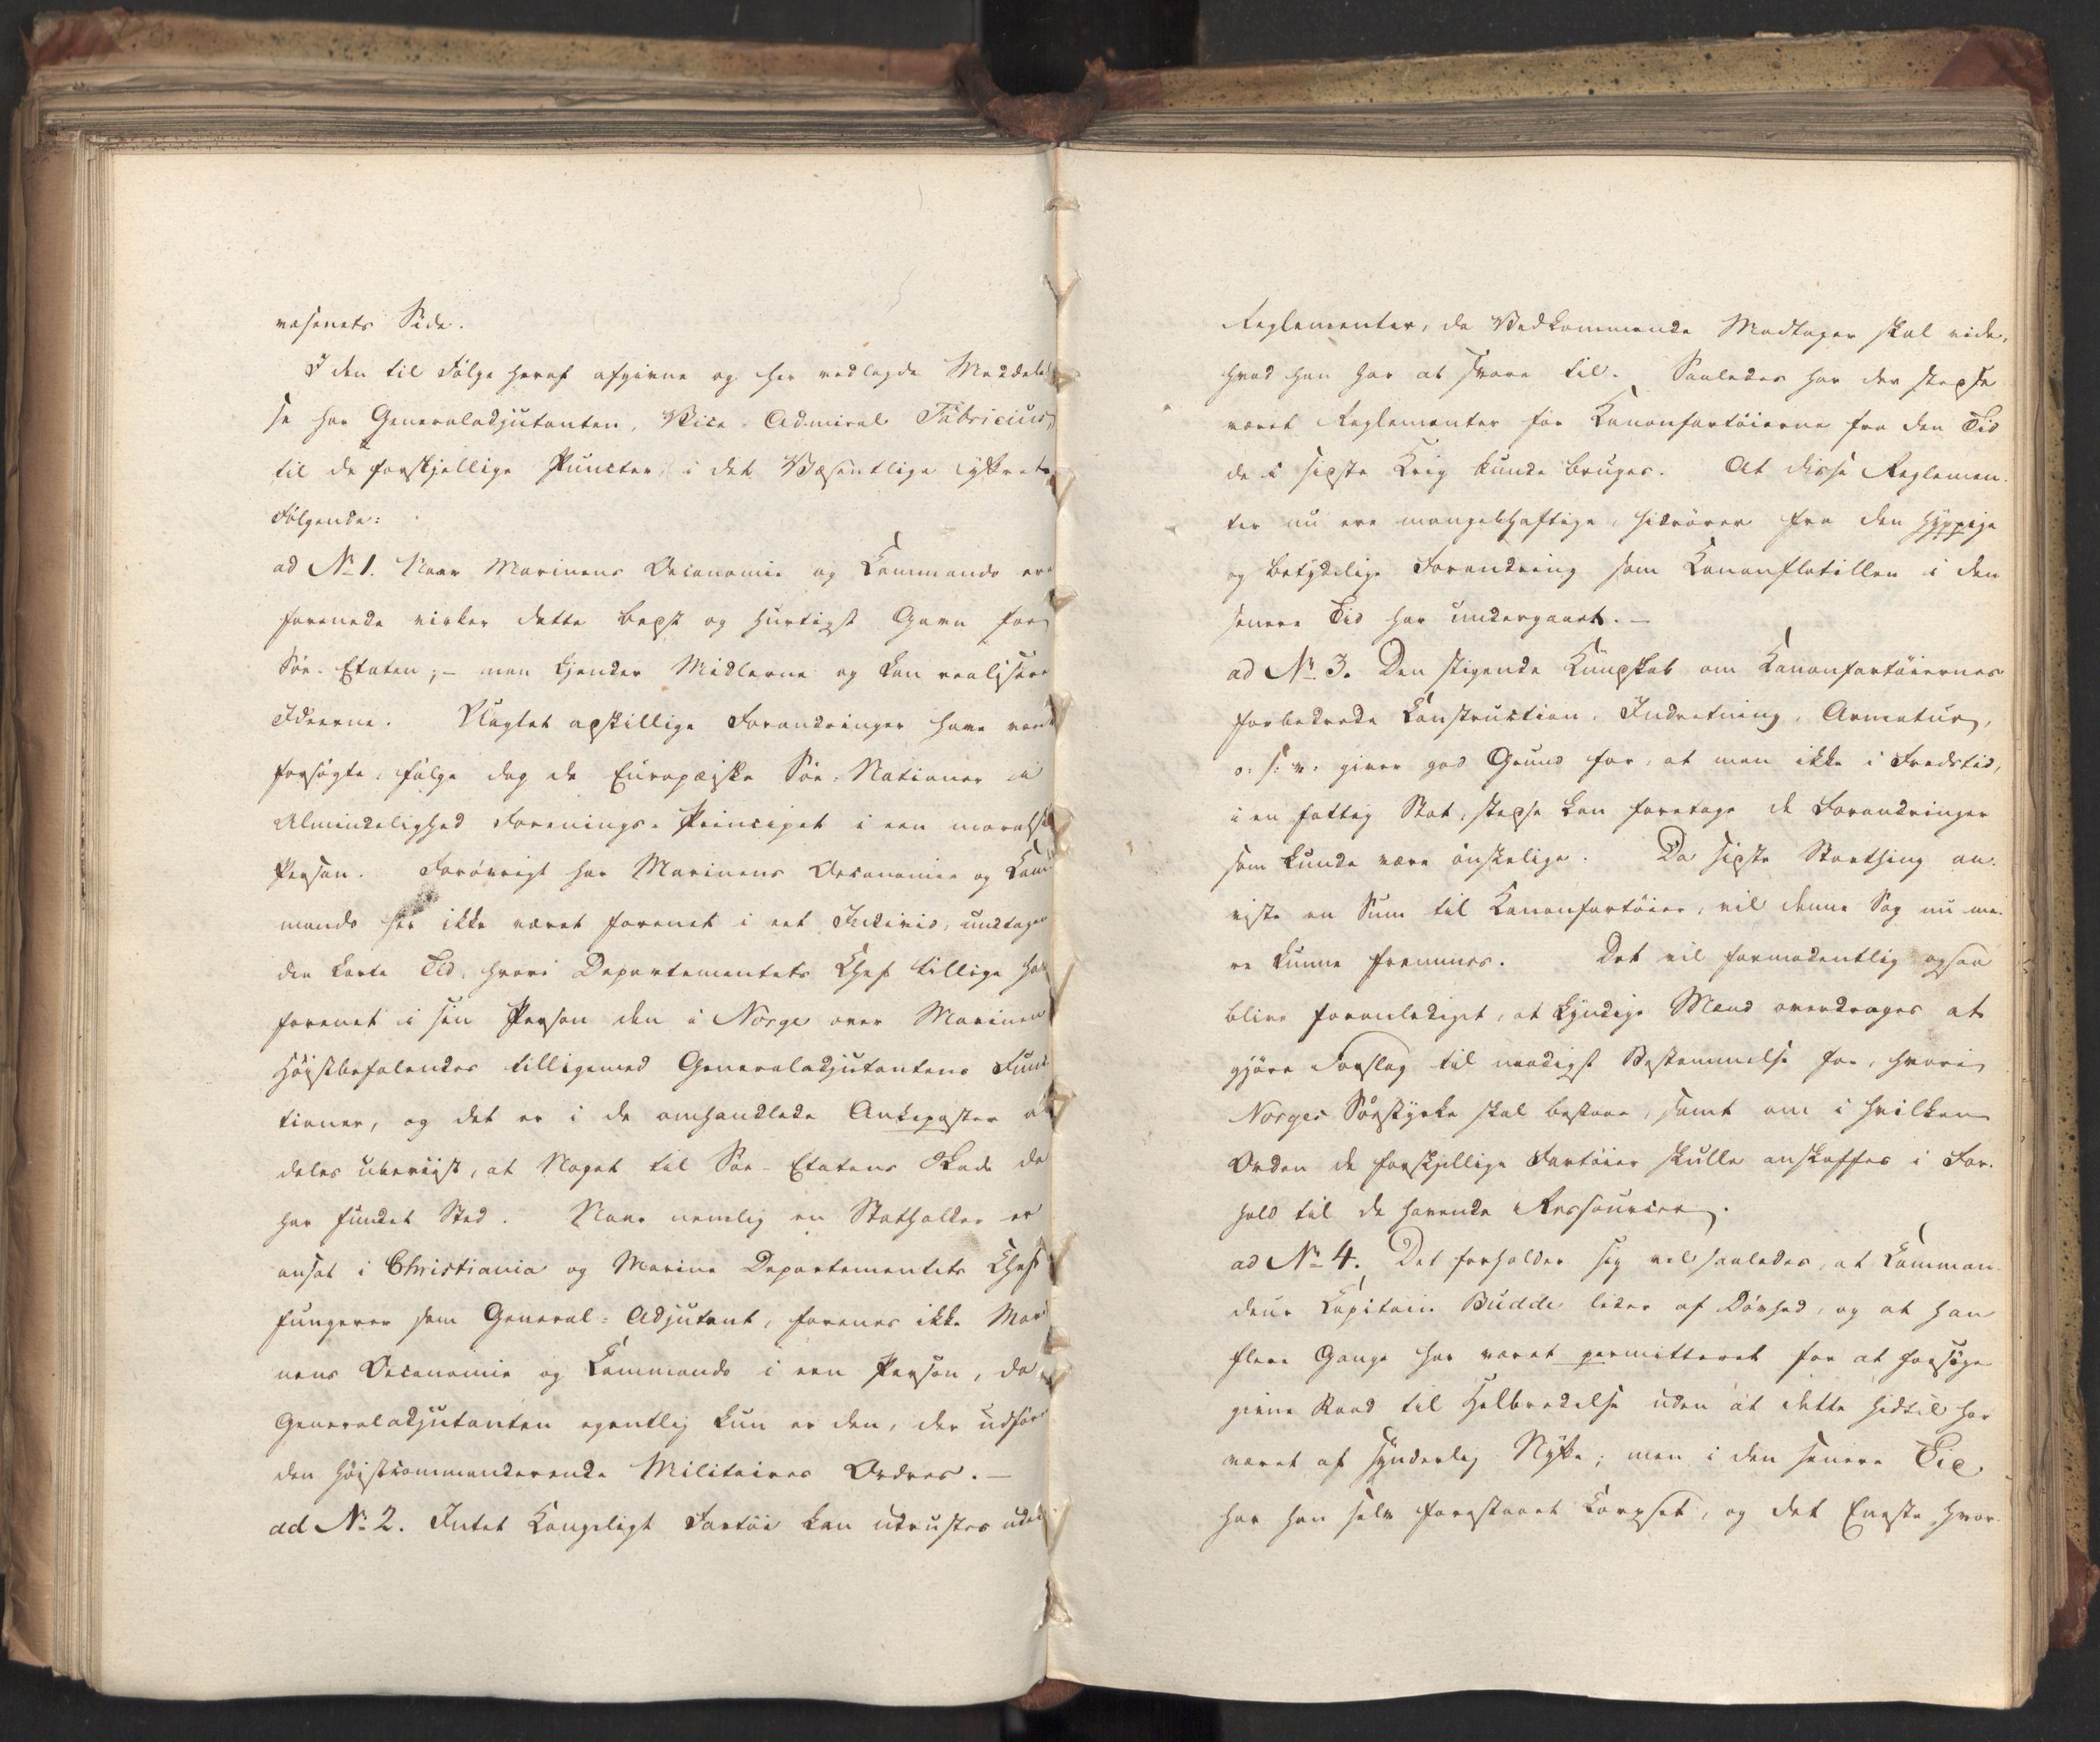 væsenets Side.
I den til Følge heraf afgivne og her vedlagde Meddelel
se har Generaladjutanten, Vice-Admiral Fabricius,
til de forskjellige Puncter, i det Væsentlige yttret
Følgende:
ad No 1. Naar Marinens Oeconomie og Kommando ere
forenede virker dette best og hurtigst Gavn for
Søe-Etaten; – man kjender Midlerne og kan realisere
Ideerne. Uagtet adskillige Forandringer have været
forsøgte, følge dog de Europæiske Søe-Nationer i
Almindelighed Forenings-Principet i een moralsk
Person. Forøvrigt har Marinens Oeconomie og Kom
mando her ikke været forenet i eet Individ, undtagen
den korte Tid, hvori Departementets Chef tillige har
forenet i sin Person den i Norge over Marinen
Høistbefalendes tilligemed Generaladjutantens Func
tioner, og det er i de omhandlede Ankeposter al
deles ubeviist, at Noget til Søe-Etatens Skade da
har fundet Sted. Naar nemlig en Statholder er
ansat i Christiania og Marine Departementets Chef
fungerer som General-Adjutant, forenes ikke Mari
nens Oeconomie og Kommando i een Person, da
Generaladjutanten egentlig kun er den, der udfører
den høistcommanderende Militaires Ordres. –
ad No 2. Intet Kongeligt Fartøi kan udrustes uden
Reglementer, da Vedkommende Modtager skal vide,
hvad han har at svare til. Saaledes har der stedse
været Reglementer for Kanonfartøierne fra den Tid
de i sidste Krig kunde bruges. At disse Reglemen-
ter nu ere mangelhaftige, hidrører fra den hyppige
og betydelige Forandring som Kanonflotillen i den
senere Tid har undergaaet. –
ad No 3. Den stigende Kundskab om Kanonfartøiernes
forbedrede Construction, Indretning, Armatur,
o: s: v: giver god Grund for, at man ikke i Fredstid,
i en fattig Stat, stedse kan foretage de Forandringer
som kunde være ønskelige. Da sidste Storthing an-
viste en Sum til Kanonfartøier, vil denne Sag nu me-
re kunne fremmes. Det vil formodentlig ogsaa
blive foranlediget, at kyndige Mænd overdrages at
gjøre Forslag til nødigst Bestemmelse for, hvori
Norges Søestyrke skal bestaae, samt om i hvilken
Orden de forskjellige Fartøier skulle anskaffes i For-
hold til de havende Ressourcer.
ad No 4. Det forholder sig vel saaledes, at Komman-
deur Capitain Budde lider af Døvhed, og at han
flere Gange har været permitteret for at forsøge
givne Raad til Helbredelse uden at dette hidtil har
været af synderlig Nytte; men i den senere Tid
har han selv forestaaet Korpset, og det Eneste hvor-